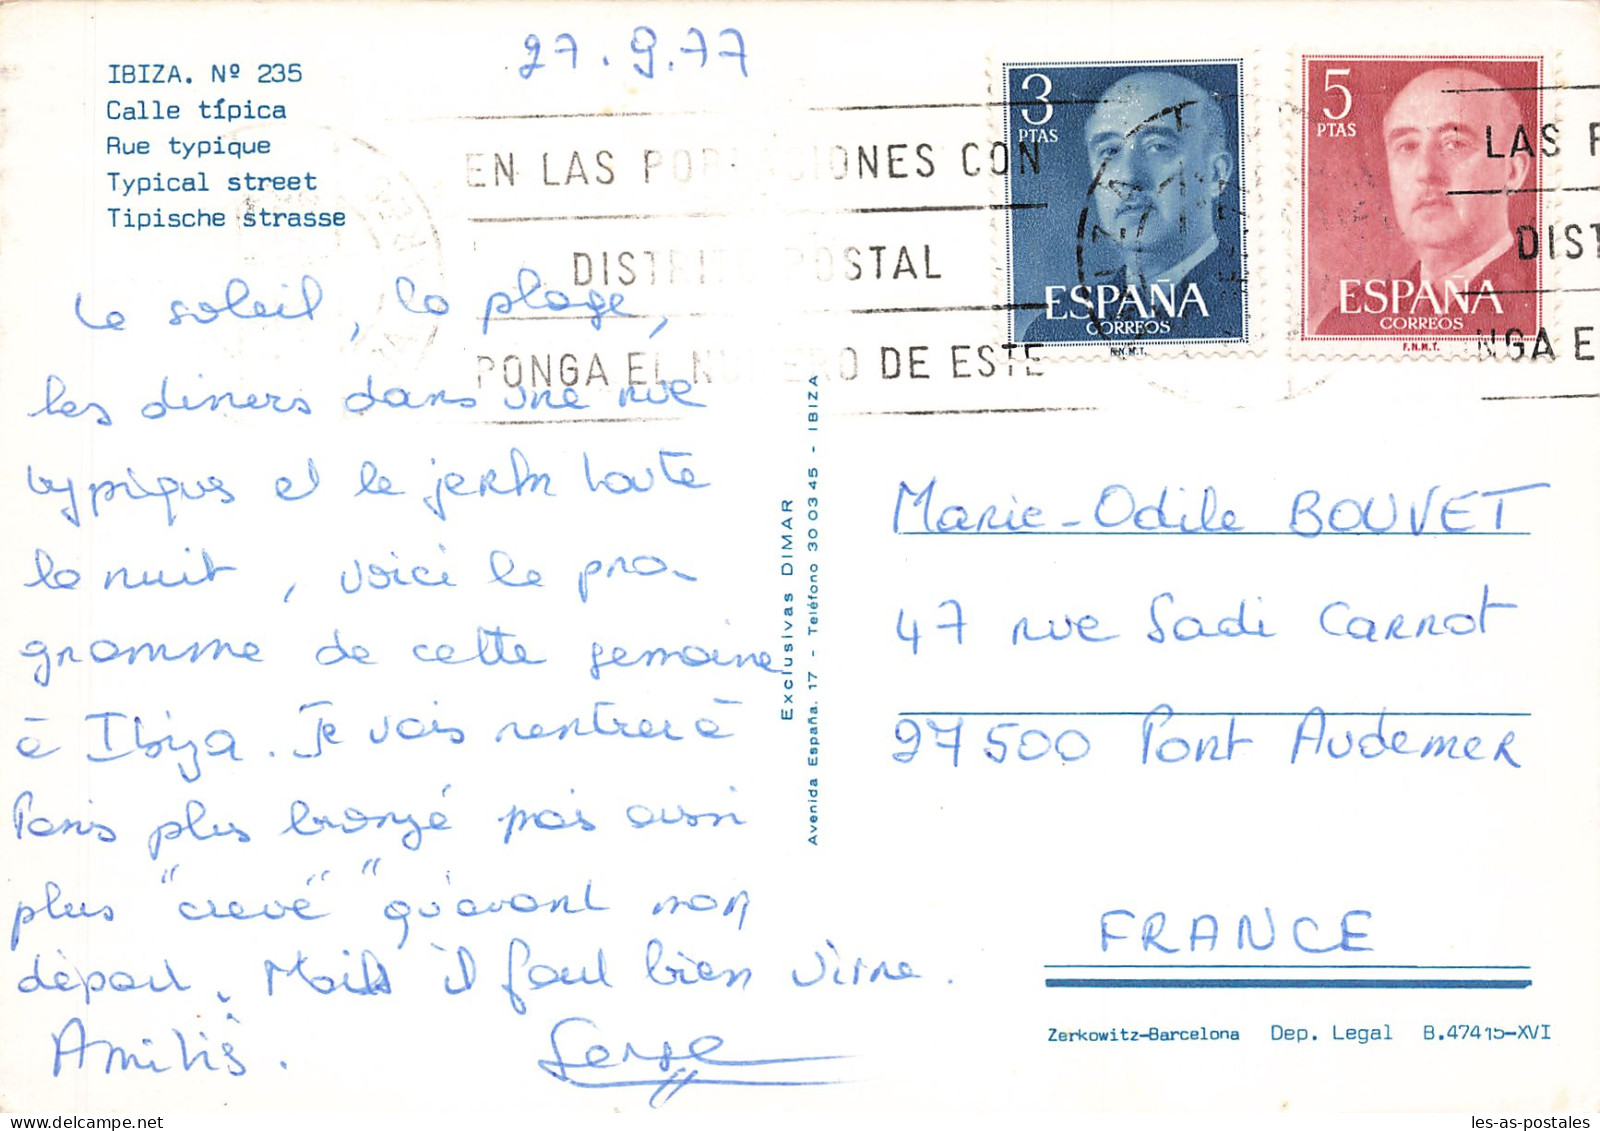 27.9.77
IBIZA. Nº 235
Calle típica
Rue typique
Typical street
Tipische strasse
EN LAS POBLACIONES CON
DISTRITO POSTAL
PONGA EL NUMERO DE ESTE
3
PTAS
ESPAÑA
CORREOS
F.N.M.T.
5
PTAS
ESPAÑA
CORREOS
F.N.M.T.
LAS P
DIST
NGA E
Le soleil, la plage,
les diners dans une rue
typiques et le jerk toute
la nuit, voici le pro-
gramme de cette semaine
à Ibiza. Je vais rentrer à
Paris plus bronzé mais aussi
plus "crevé" qu'avant mon
départ. Mais il faut bien vivre.
Amitiés.
Serge
Exclusivas DIMAR
Avenida España, 17 - Teléfono 30 03 45 - IBIZA
Marie-Odile BOUVET
47 rue Sadi Carnot
27500 Pont Audemer
FRANCE
Zerkowitz-Barcelona Dep. Legal B.47415-XVI
les-as-postales